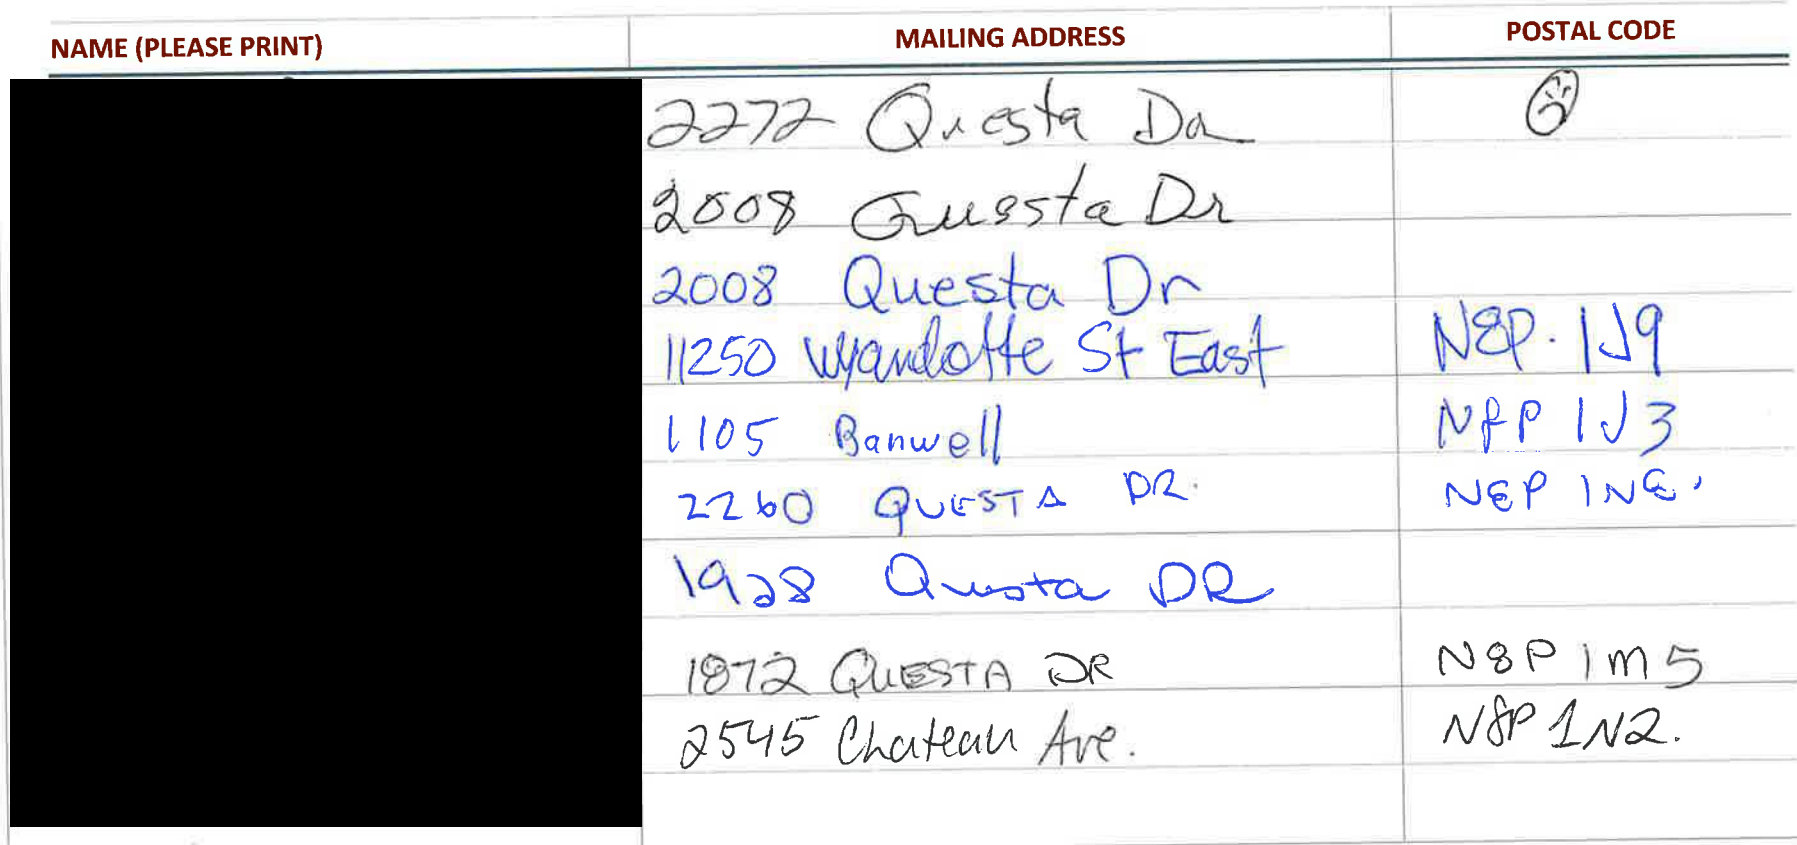 NAME (PLEASE PRINT) MAILING ADDRESS POSTAL CODE
2272 Questa Dr
2008 Questa Dr
2008 Questa Dr
11250 Wyandotte St East N8P. 1J9
1105 Banwell N8P 1J3
2260 QUESTA DR. N8P 1N6.
1928 Questa DR
1872 QUESTA DR N8P 1M5
2545 Chateau Ave. N8P 1N2.